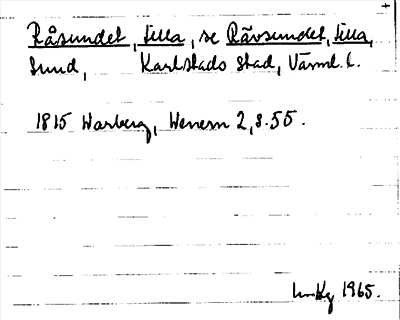 Råsundet, Lilla, se Rävsundet, Lilla,
Sund, Karlstads stad, Värml. l.
1815 Warberg, Wenern 2, s. 55.
1965.